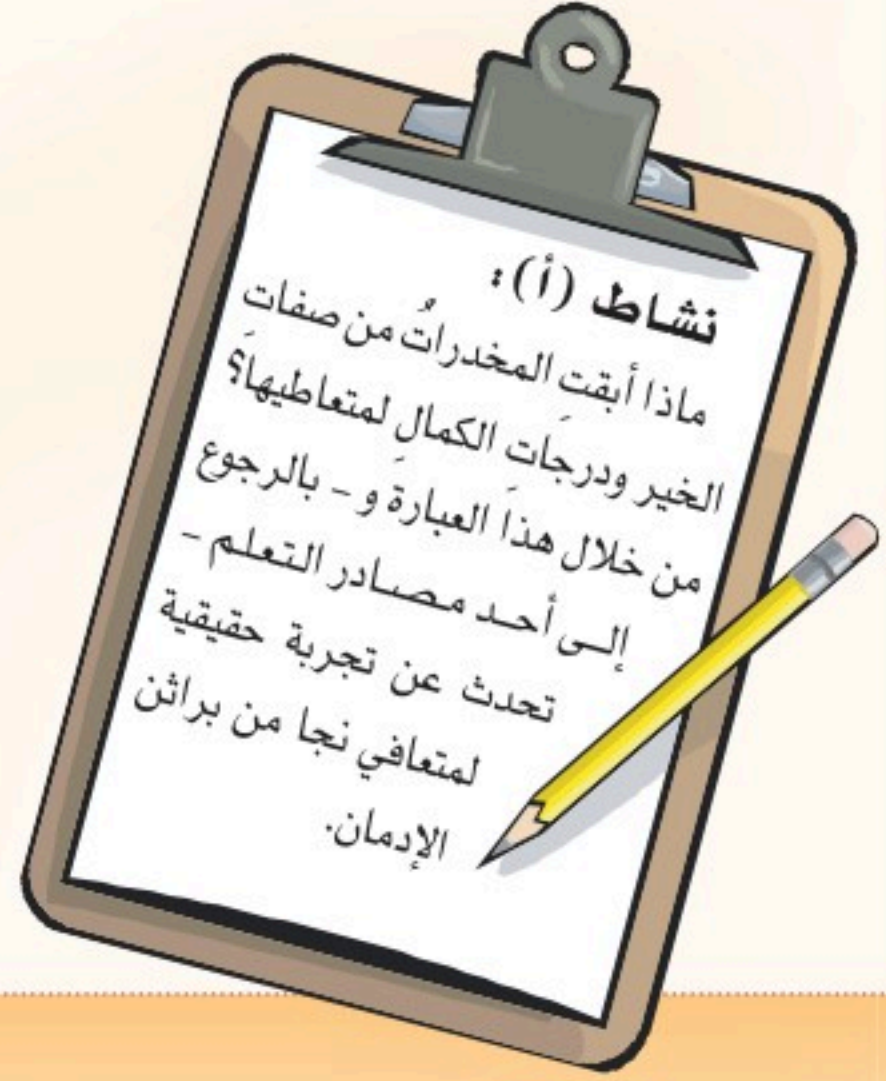 نشاط (أ) :
ماذا أبقتِ المخدراتُ من صفاتِ
الخير ودرجاتِ الكمالِ لمتعاطيها؟
من خلال هذَا العبارة و - بالرجوع
إلى أحد مصادر التعلم -
تحدث عن تجربة حقيقية
لمتعافي نجا من براثن
الإدمان.